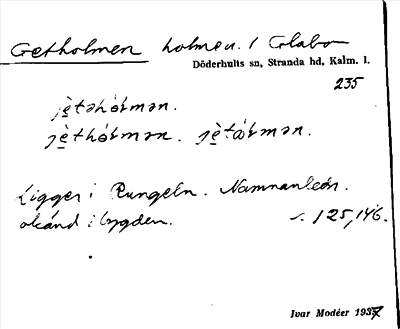 Getholmen holmen i Glabo
Döderhults sn, Stranda hd, Kalm. l.
235
jè̱təhólmən.
jè̱thólmən. jè̱tálmən.
Ligger i Rungeln. Namnanledn.
okänd i bygden. 125,146.
Ivar Modéer 1937